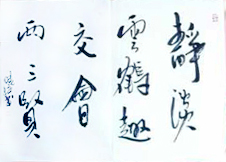 靜淡
雲鶴趣
交會
兩三賢